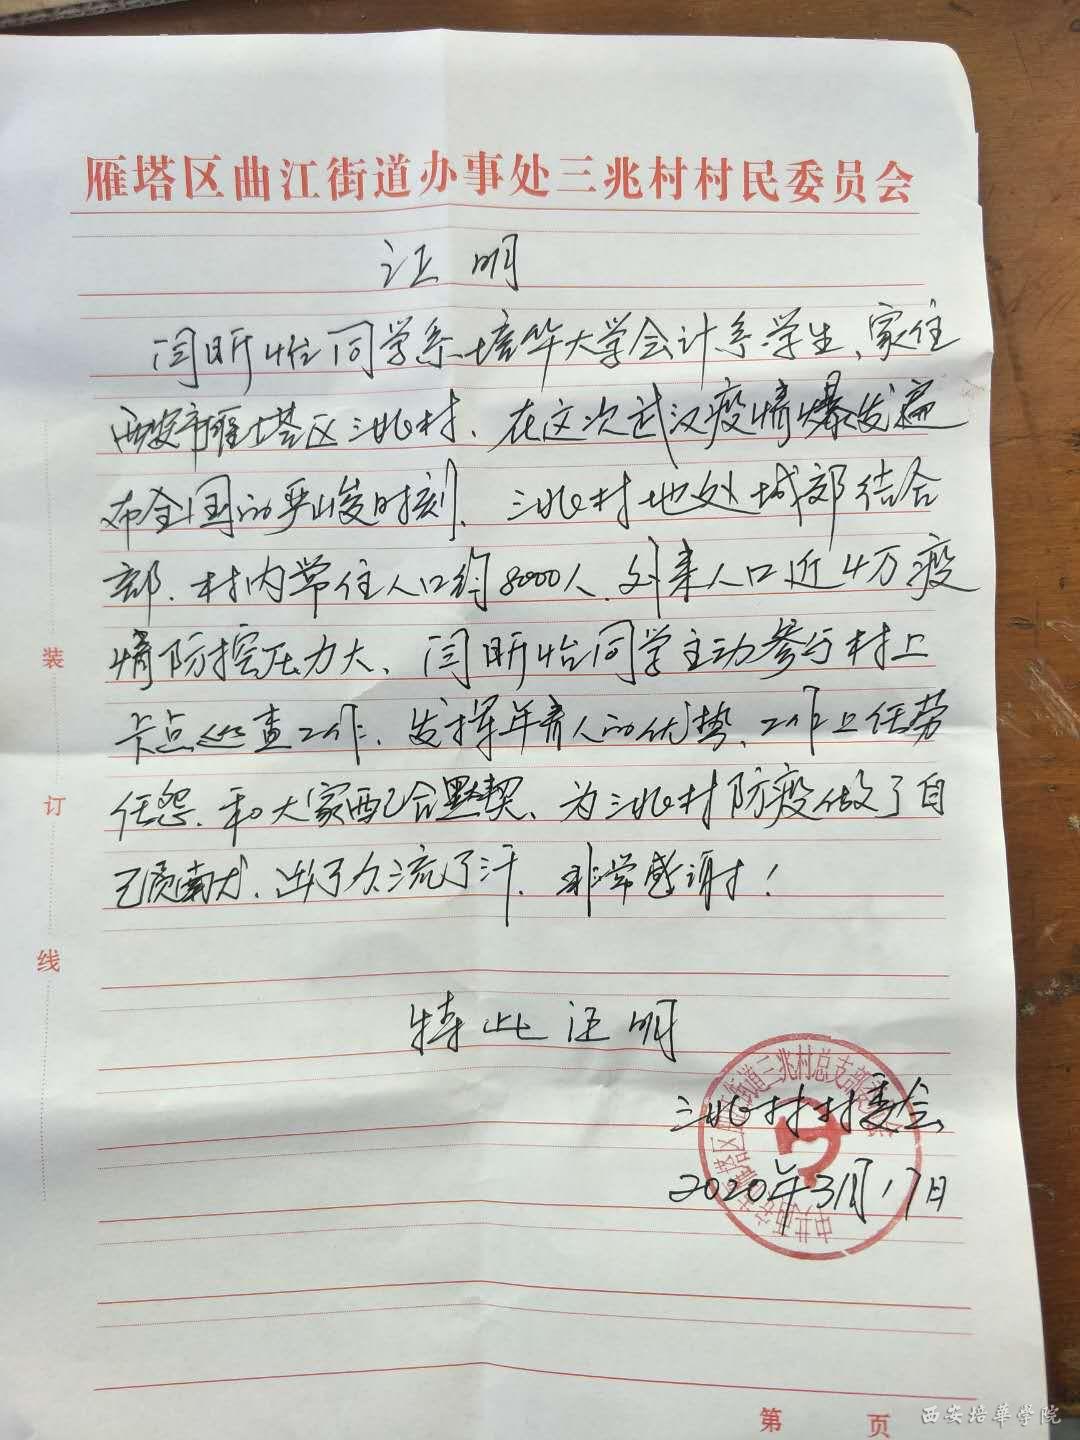 雁塔区曲江街道办事处三兆村村民委员会
证明
闫昕怡同学系培华大学会计系学生、家住
西安市雁塔区三兆村、在这次武汉疫情爆发遍
布全国的严峻时刻、三兆村地处城郊结合
部、村内常住人口约8000人、外来人口近4万疫
情防控压力大、闫昕怡同学主动参与村上
卡点巡查工作、发挥年青人的优势、工作上任劳
任怨、和大家配合默契、为三兆村防疫做了自
己贡献、出了力流了汗、非常感谢！
特此证明
三兆村村委会
2020年3月17日
装
订
线
第 页
西安培華学院